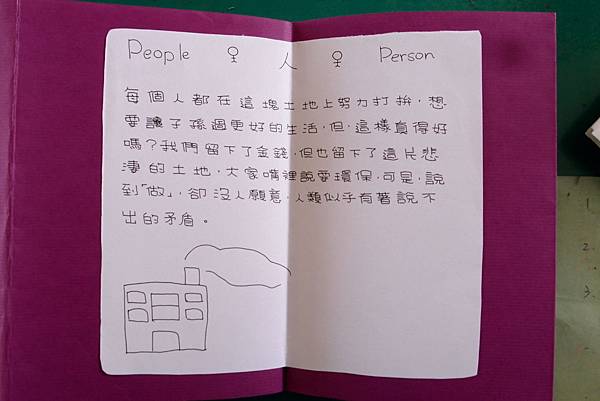 People ♀ 人 ♀ Person
每個人都在這塊土地上努力打拚,想
要讓子孫過更好的生活,但,這樣真得好
嗎?我們留下了金錢,但也留下了這片悲
淒的土地,大家嘴裡說要環保,可是,說
到「做」,卻沒人願意,人類似乎有著說不
出的矛盾。
1.
2.
3.